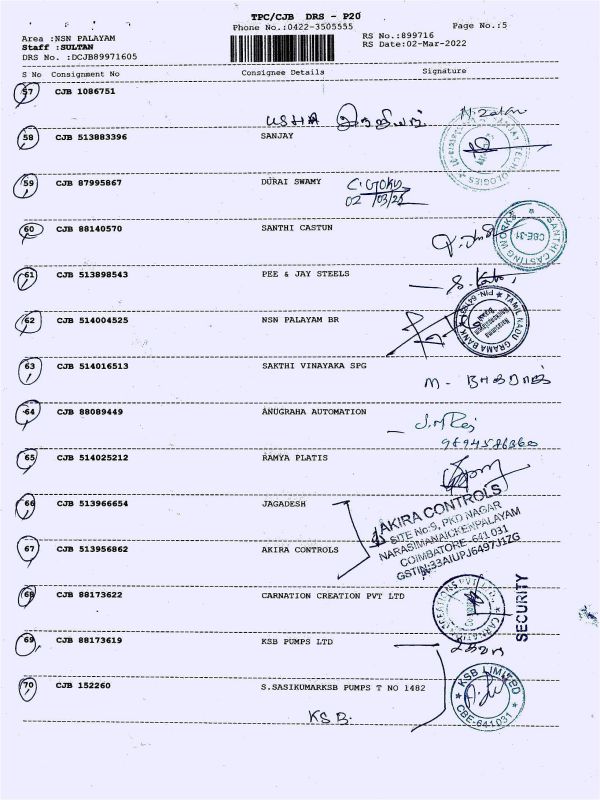 TPC/CJB DRS - P20
Phone No.:0422-3505555
Page No.:5
Area :NSN PALAYAM
RS No.:899716
Staff :SULTAN
RS Date:02-Mar-2022
DRS No. :DCJB89971605
S No Consignment No Consignee Details Signature
57 CJB 1086751
USHA
58 CJB 513883396 SANJAY
59 CJB 87995867 DURAI SWAMY
02/03/22
60 CJB 88140570 SANTHI CASTUN
SANTHI CASTING WORKS
CBE-31
61 CJB 513898543 PEE & JAY STEELS
62 CJB 514004525 NSN PALAYAM BR
TAMIL NADU GRAMA BANK
63 CJB 514016513 SAKTHI VINAYAKA SPG
64 CJB 88089449 ANUGRAHA AUTOMATION
9894586360
65 CJB 514025212 RAMYA PLATIS
66 CJB 513966654 JAGADESH
AKIRA CONTROLS
SITE No:9, PKD NAGAR
NARASIMANAICKENPALAYAM
COIMBATORE -641 031
GSTIN:33AIUPJ6497J1ZG
67 CJB 513956862 AKIRA CONTROLS
68 CJB 88173622 CARNATION CREATION PVT LTD
SECURITY
69 CJB 88173619 KSB PUMPS LTD
70 CJB 152260 S.SASIKUMARKSB PUMPS T NO 1482
KSB LIMITED
CBE-641 031
KSB.